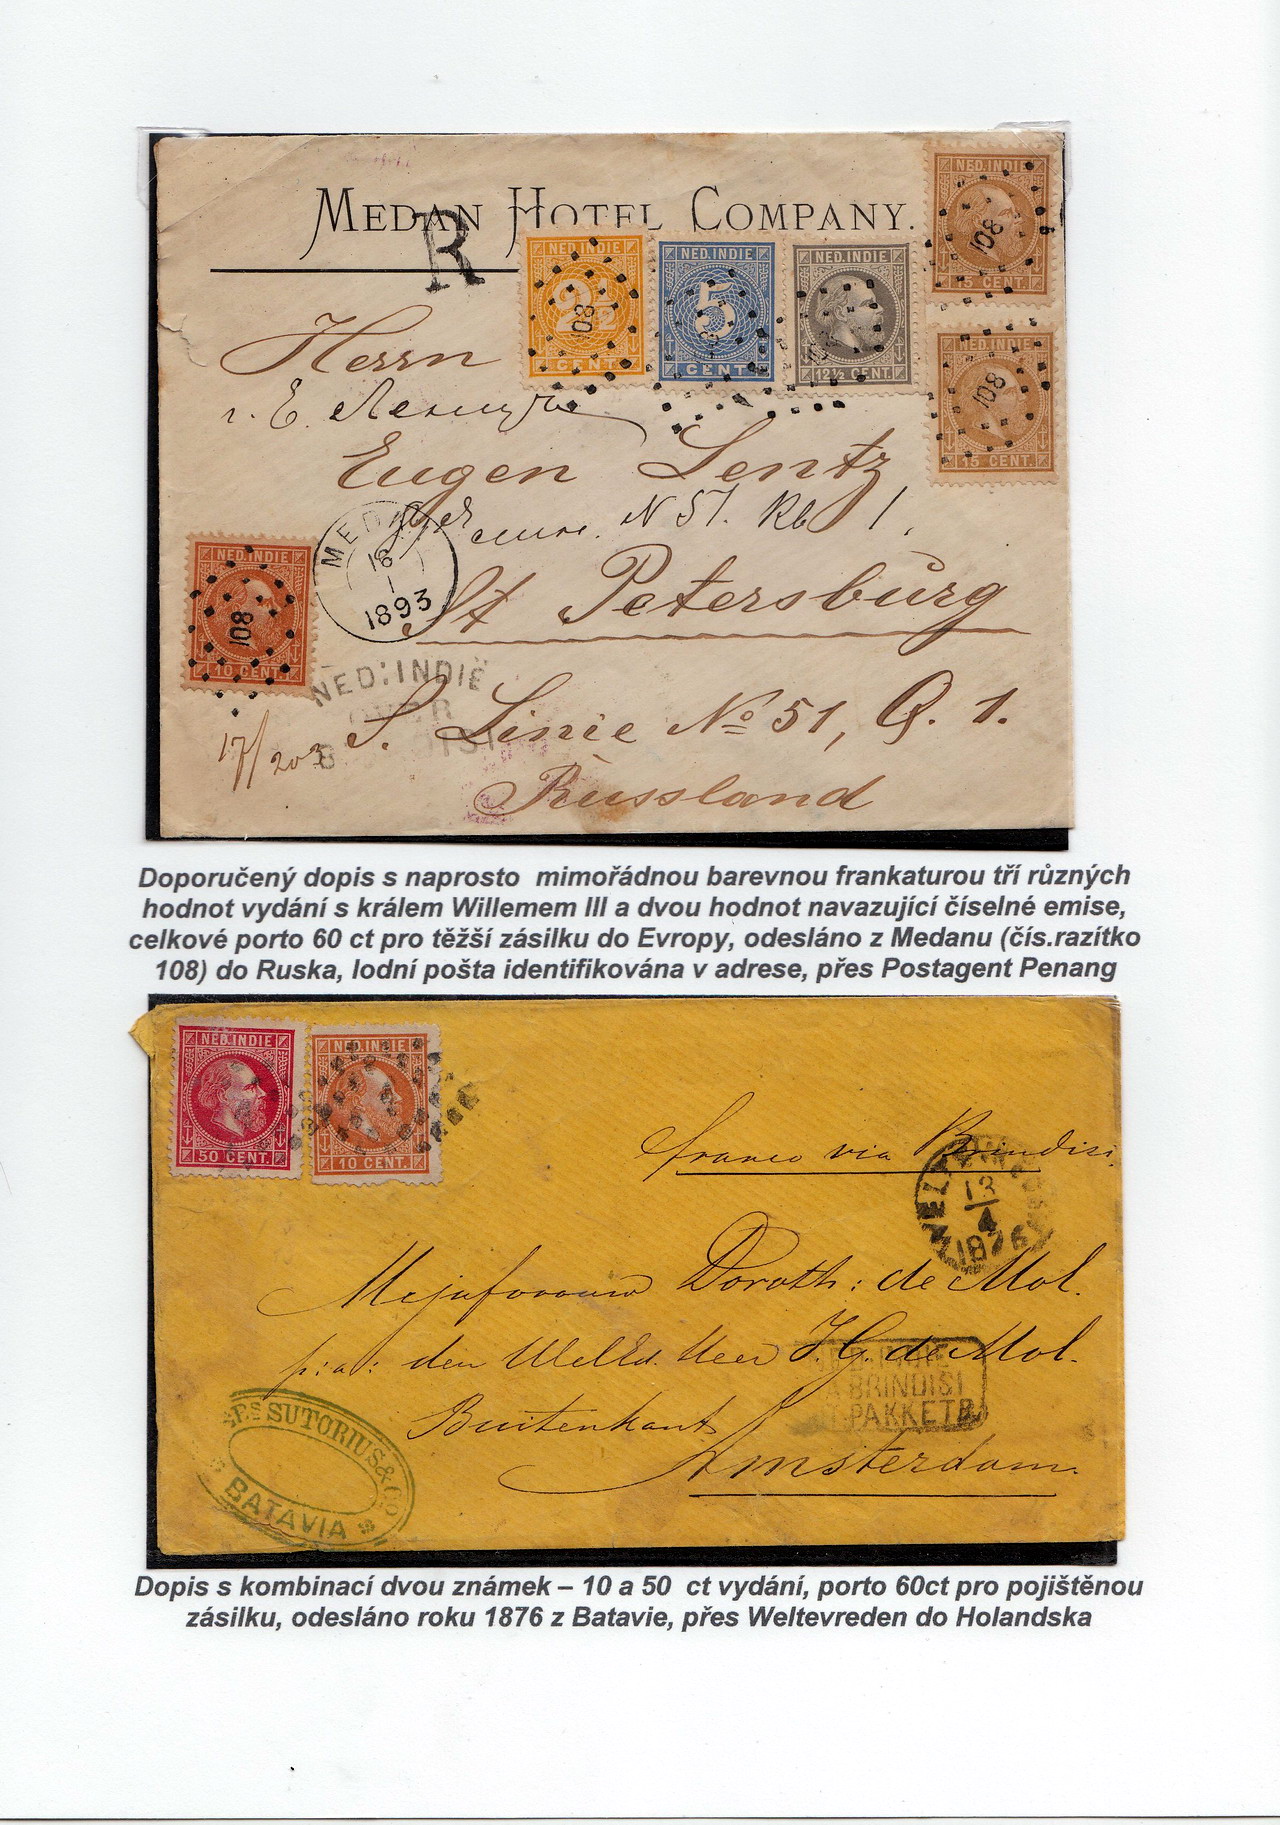 MEDAN HOTEL COMPANY.
R
NED. INDIE
15 CENT.
108
NED. INDIE
2½
CENT
108
NED. INDIE
5
CENT
NED. INDIE
12½ CENT.
NED. INDIE
15 CENT.
108
Herrn
г. Е.
Eugen Lentz
N 51. Кв 1.
MEDAN
18
1
1893
St Petersburg
NED. INDIE
10 CENT.
108
NED: INDIË
OVER
BRINDISI
S. Linie No 51, Q. 1.
17/203
Russland
Doporučený dopis s naprosto mimořádnou barevnou frankaturou tří různých
hodnot vydání s králem Willemem III a dvou hodnot navazující číselné emise,
celkové porto 60 ct pro těžší zásilku do Evropy, odesláno z Medanu (čís.razítko
108) do Ruska, lodní pošta identifikována v adrese, přes Postagent Penang
NED. INDIE
50 CENT.
NED. INDIE
10 CENT.
franco via Brindisi
WELTEVREDEN
13
4
1876
Mejufvrouw Doroth: de Mol.
p:a: den WelEd. Heer J. G. de Mol.
BRINDISI
PAKKETB.
Buitenkant
Amsterdam.
SUTORIUS & Co
BATAVIA
Dopis s kombinací dvou známek – 10 a 50 ct vydání, porto 60ct pro pojištěnou
zásilku, odesláno roku 1876 z Batavie, přes Weltevreden do Holandska